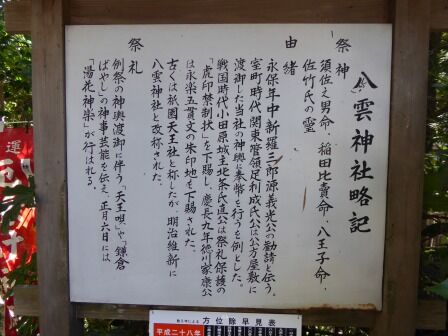 八雲神社略記
祭神
須佐之男命・稲田比賣命・八王子命・
佐竹氏の霊
由緒
永保年中、新羅三郎源義光公の勧請と伝う。
室町時代、関東管領足利成氏公は公方屋敷に
渡御した当社の神輿に奉幣を行うを例とした。
戦国時代小田原城主北条氏直公は祭礼保護の
「虎印禁制状」を下賜し、慶長九年徳川家康公
は永楽五貫文の朱印地を下賜された。
古くは祇園天王社と称したが、明治維新に
八雲神社と改称された。
祭礼
例祭の神輿渡御に伴う「天王唄」や「鎌倉
ばやし」の神事芸能を伝え、正月六日には
「湯花神楽」が行はれる。
方位除早見表
平成二十八年
運